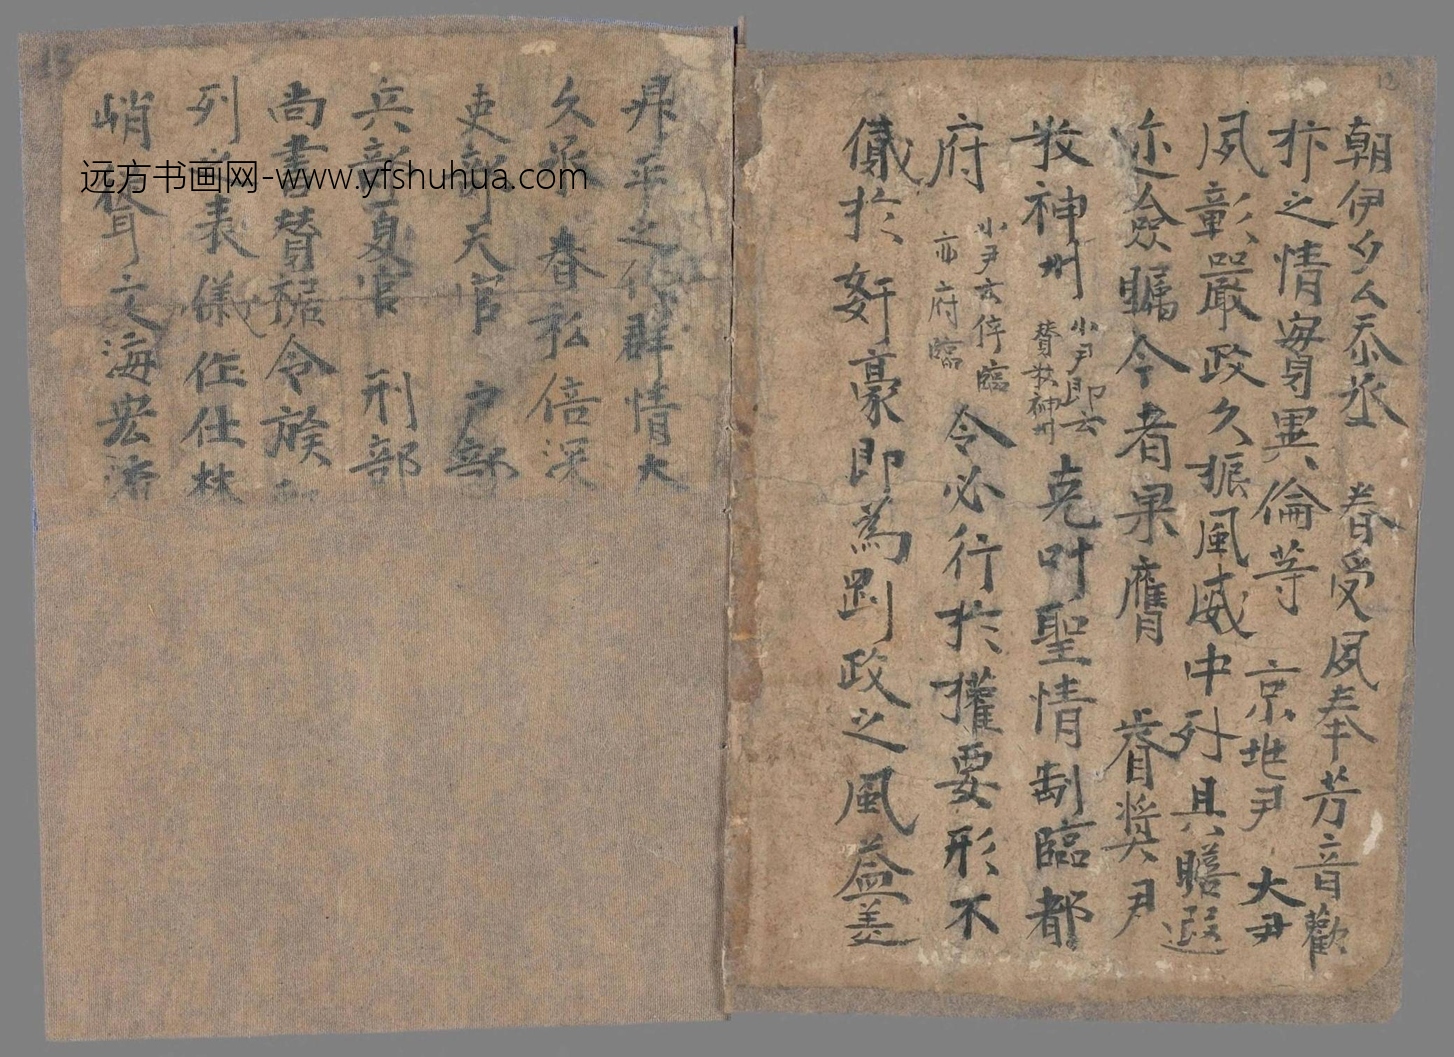 朝伊夕厶忝丞 春受夙奉芳音歡
抃之情寔異倫等 京地尹 大尹
夙彰嚴政久振風威中外具瞻遐
迩僉矚今者果膺 睠奬尹
牧神州 小尹即云賛牧神州 克叶聖情制臨都
府 小尹云倅臨亦府臨 令必行於權要形不
儀於姧豪即為剴政之風益差
昇平之 群情大
久丞 眷私倍深
吏部天官 戸部
兵部夏官 刑部
尚書賛 令族
列 表儀 仕林
峭 文海宏
远方书画网-www.yfshuhua.com
12
13